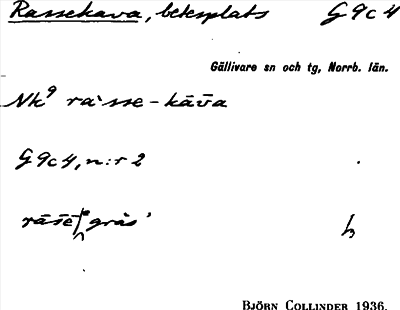 Rassekava, betesplats G 9c 4
Gällivare sn och tg, Norrb. län.
Nk⁹ ra`sse-kāva
G 9c 4, n:r 2
'gräs'
BJÖRN COLLINDER 1936.